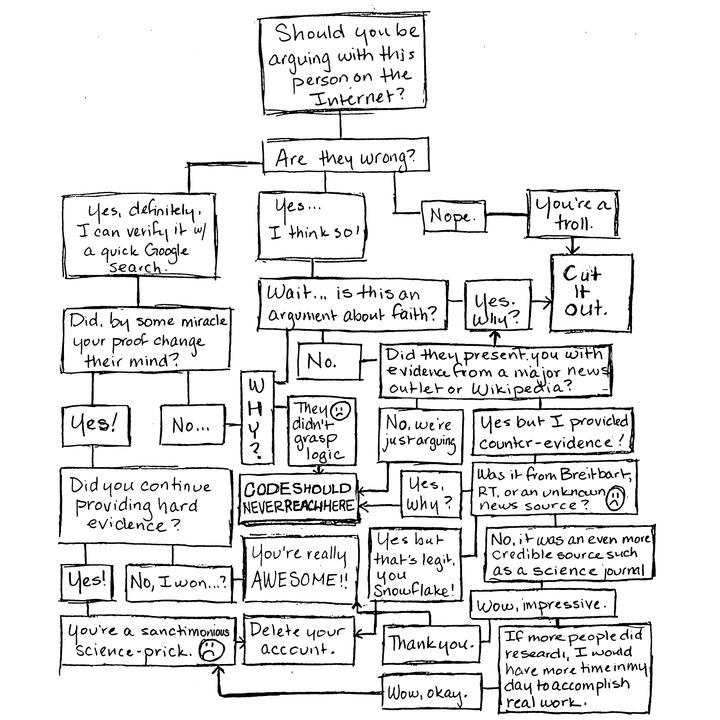 Should you be
arguing with this
person on the
Internet?
Are they wrong?
Yes, definitely,
I can verify it w/
a quick Google
search.
Yes...
I think so!
Nope.
You're a
troll.
Cut
It
Out.
Wait... is this an
argument about faith?
Yes.
Why?
Did, by some miracle
your proof change
their mind?
No.
Did they present you with
evidence from a major news
outlet or Wikipedia?
Yes!
No...
W
H
Y
?
They
didn't
grasp
logic
No, we're
just arguing
Yes but I provided
counter-evidence!
Did you continue
providing hard
evidence?
CODE SHOULD
NEVER REACH HERE
Yes,
why?
Was it from Breitbart,
RT, or an unknown
news source?
Yes!
No, I won...?
You're really
AWESOME!!
Yes but
that's legit,
you
Snowflake!
No, it was an even more
credible source such
as a science journal
Wow, impressive.
You're a sanctimonious
science-prick.
Delete your
account.
Thank you.
If more people did
research, I would
have more time in my
day to accomplish
real work.
Wow, okay.